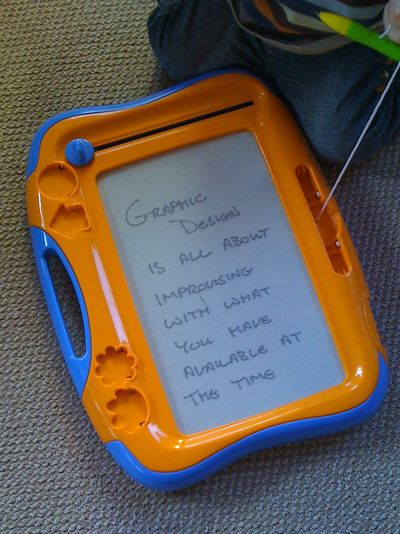 GRAPHIC
DESIGN
IS ALL ABOUT
IMPROVISING
WITH WHAT
YOU HAVE
AVAILABLE AT
THE TIME